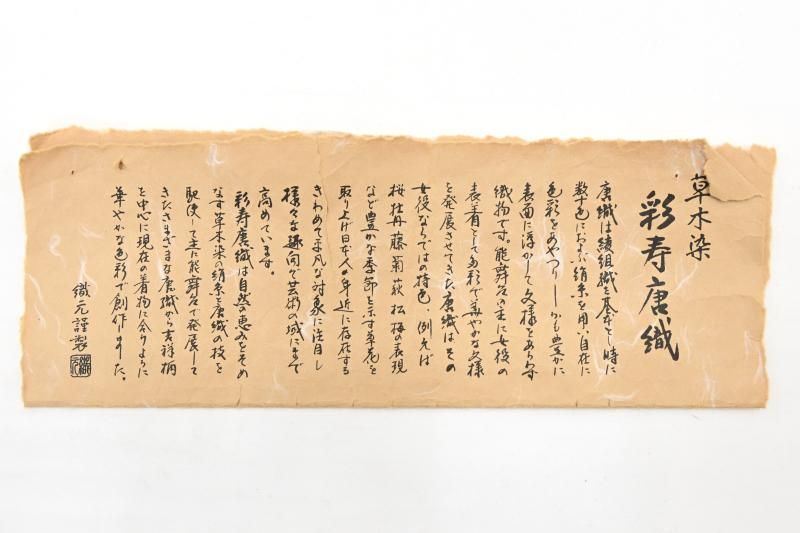 草木染
彩寿唐織
唐織は綾組織を基本とし時に
数十色におよぶ絹糸を用い自在に
色彩をあやつりしかも豊かに
表面に浮かして文様をあらわす
織物です。能舞台の主に女役の
表着として多彩で華やかな文様
を発展させてきた唐織はその
女役ならではの特色、例えば
桜牡丹藤菊萩松梅の表現
など豊かな季節を示す草花を
取り上げ日本人の身近に存在する
きわめて平凡な対象に注目し
様々な趣向で芸術の域にまで
高めています。
彩寿唐織は自然の恵みをそめ
なす草木染の絹糸と唐織の技を
駆使して主に能舞台で発展して
きたさまざまな唐織から吉祥柄
を中心に現在の着物に合うように
華やかな色彩で創作しました。
織元謹製